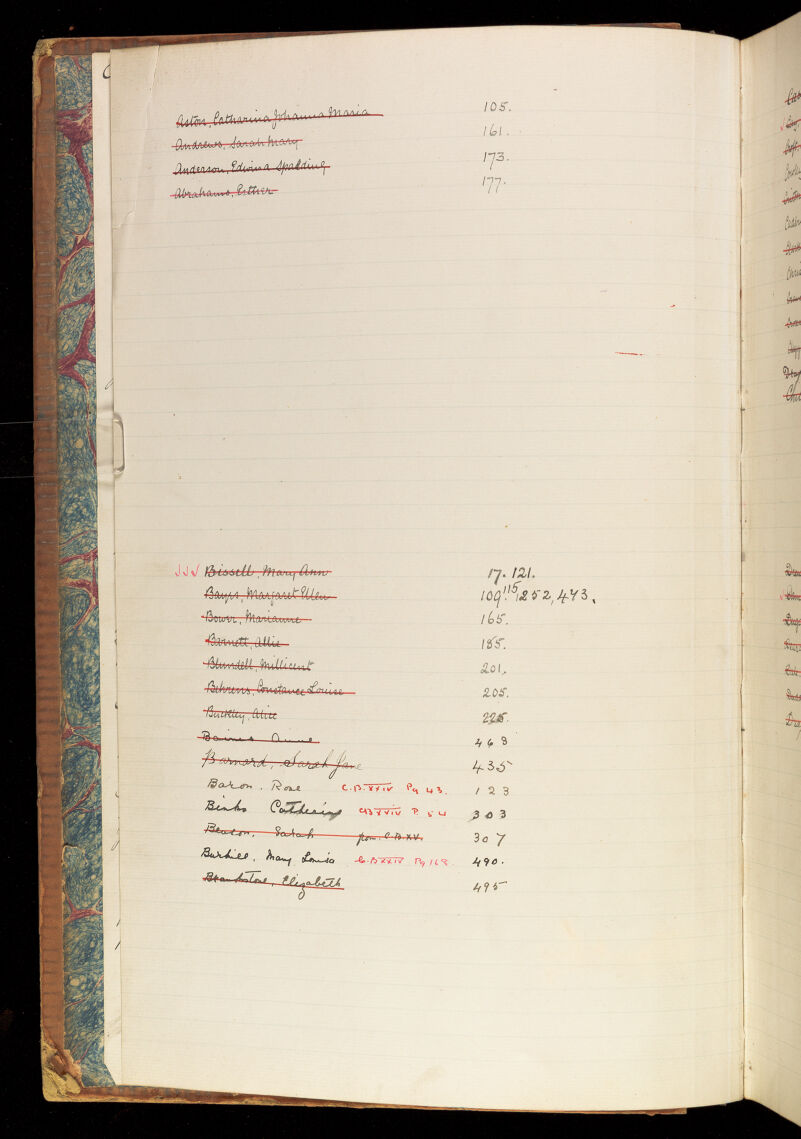 Aston, Catharina Johanna Maria 105.
Andrews, Sarah Mary 161.
Anderson, Edwina Spalding 173.
Abrahams, Esther 177.
Bissell, Mary Ann 17. 121.
Bayrs, Margaret Ellen 109. 115, 252, 473.
Bower, Marianne 165.
Barnett, Allie 185.
Blundell, Millicent 201.
Behrens, Constance Louise 205.
Buckley, Alice 225.
Baines Anne 468
Barnard, Sarah Jane 435
Baron. Rose C.B. XXIV Pg 43. 123
Binks Catherine CB XXIV P. 54 303
Beacon. Sarah from C.B. XV. 307
Burhill, Mary Louisa C.B XXIV Pg 168. 490.
Elizabeth 495